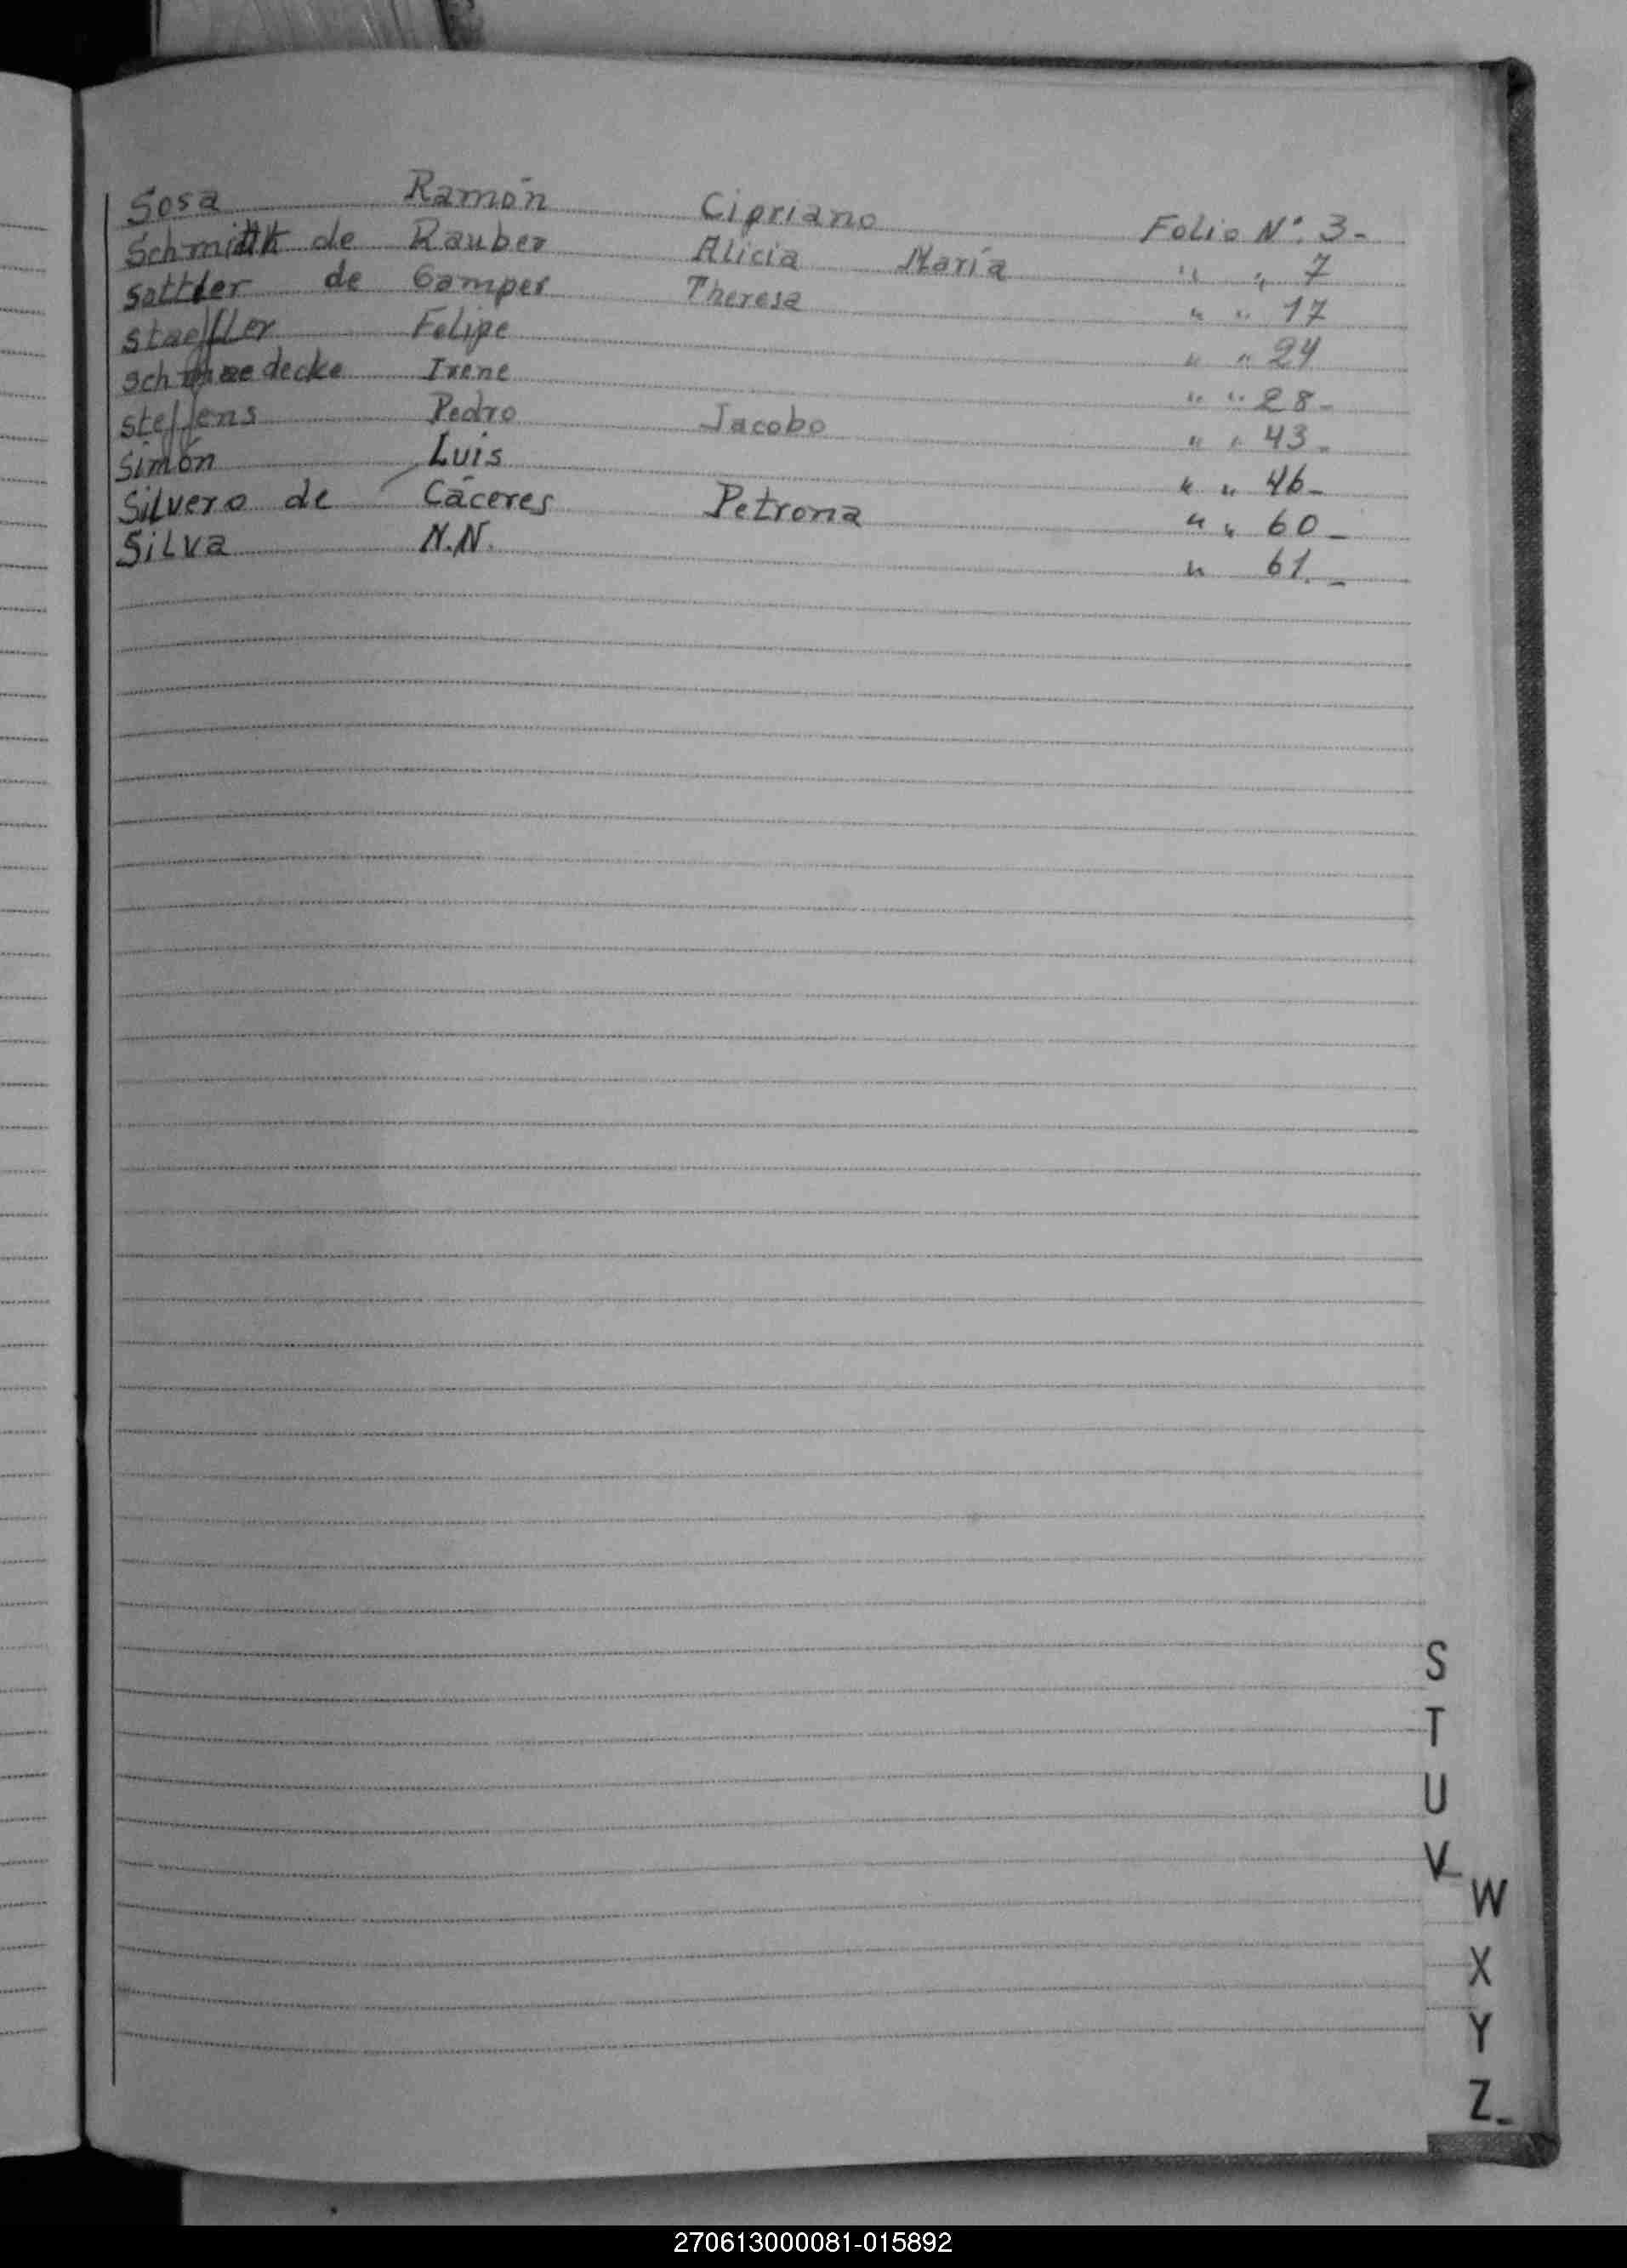 Sosa Ramón Cipriano Folio N°. 3-
de Rauber Alicia María " " 7
Sattler de Gamper Theresa " " 17
Staeffler Felipe " " 24
Irene " " 28-
Steffens Pedro Jacobo " " 43-
Simón Luis " " 46-
Silvero de Cáceres Petrona " " 60-
Silva N.N. " 61.-
S
T
U
V
W
X
Y
Z-
270613000081-015892